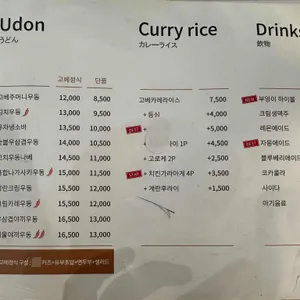 Udon
うどん
고베정식 단품
고베주머니우동 12,000 8,500
김치우동 13,500 9,000
자냉소바 13,500 10,000
불우삼겹우동 14,000 10,000
꼬치우동나베 14,500 11,000
해합나가사키우동 15,000 11,500
란크림우동 15,500 12,000
림카레우동 15,500 12,000
우삼겹야끼우동 16,500 13,000
해물야끼우동 16,500 13,000
고베정식 구성 : 카츠+유부초밥+연두부+샐러드
Curry rice
カレーライス
고베카레라이스 7,500
+ 등심 +4,000
BEST + +5,000
이 1P +4,500
+ 고로케 2P +2,500
STAR + 치킨가라아게 4P +3,500
+ 계란후라이 +1,500
Drinks
飲物
NEW 부엉이 하이볼
크림생맥주
레몬에이드
BEST 자몽에이드
블루베리에이드
코카콜라
사이다
아기음료